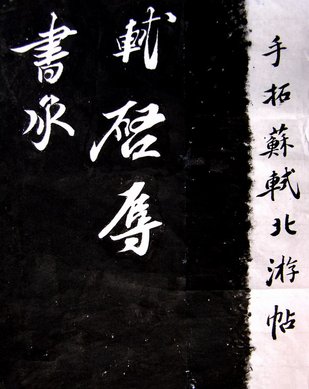 手拓蘇軾北游帖
軾啓辱
書承